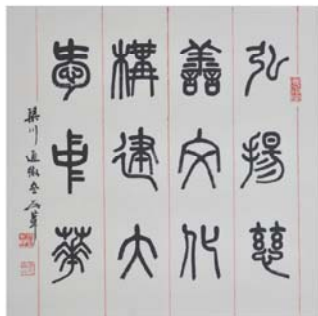 弘揚慈
善文化
構建大
愛中華